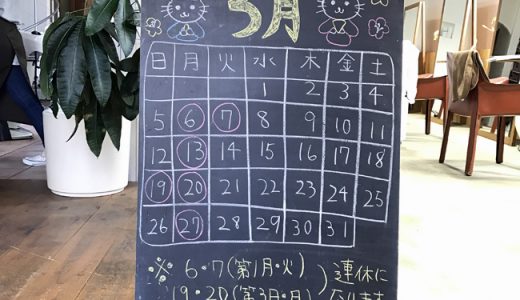 5月
日 月 火 水 木 金 土
1 2 3 4
5 6 7 8 9 10 11
12 13 14 15 16 17 18
19 20 21 22 23 24 25
26 27 28 29 30 31
※ 6・7(第1月・火) ) 連休に
19・20(第3日・月) なります